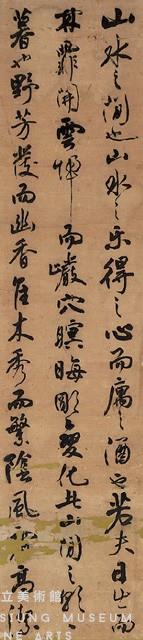 山水之間也山水之樂得之心而寓之酒也若夫日出而
林霏開雲歸而巖穴暝晦明變化此山間之朝
暮也野芳發而幽香佳木秀而繁陰風霜高潔
立美術館
SIUNG MUSEUM
NE ARTS